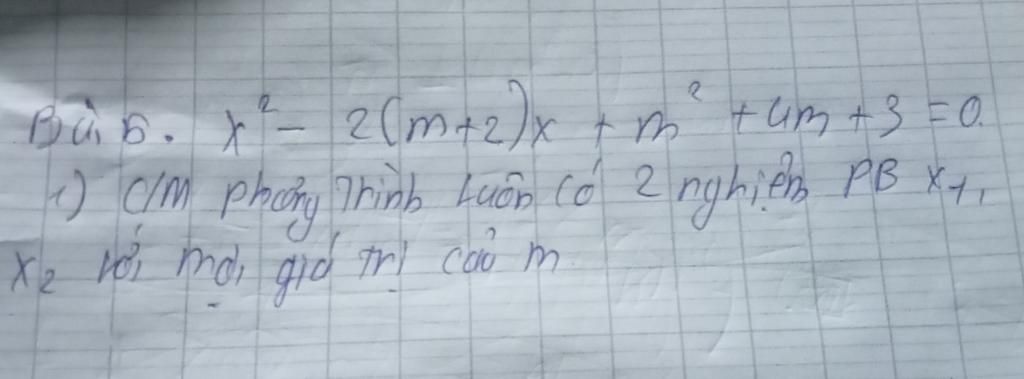 Bài 5. x² - 2(m+2)x + m² + 4m + 3 = 0.
1) C/M phương trình luôn có 2 nghiệm PB x₁,
x₂ với mọi giá trị của m